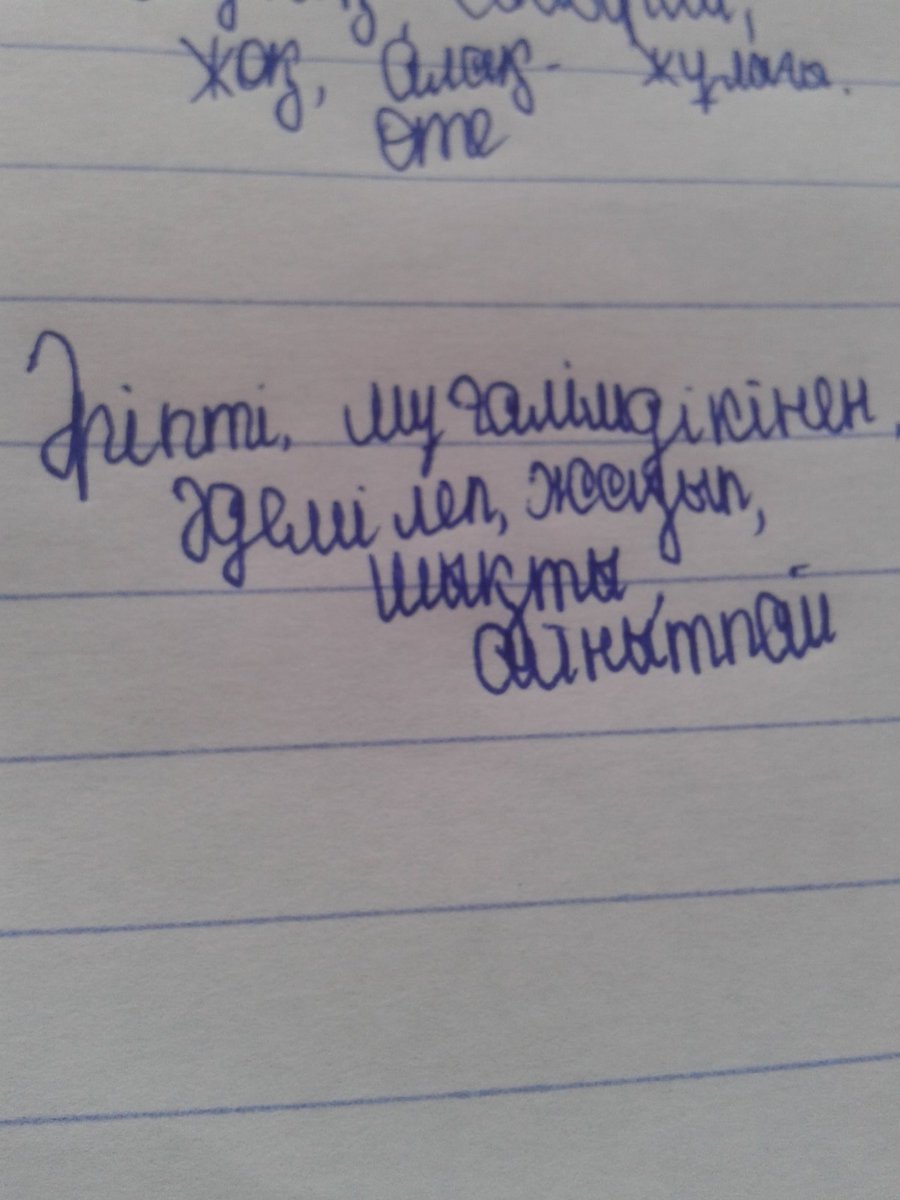 жоқ, алақ- жұлаға.
өте
Әріпті, мұғалімдікінен,
әдемілеп, жазып,
шықты
айнытпай